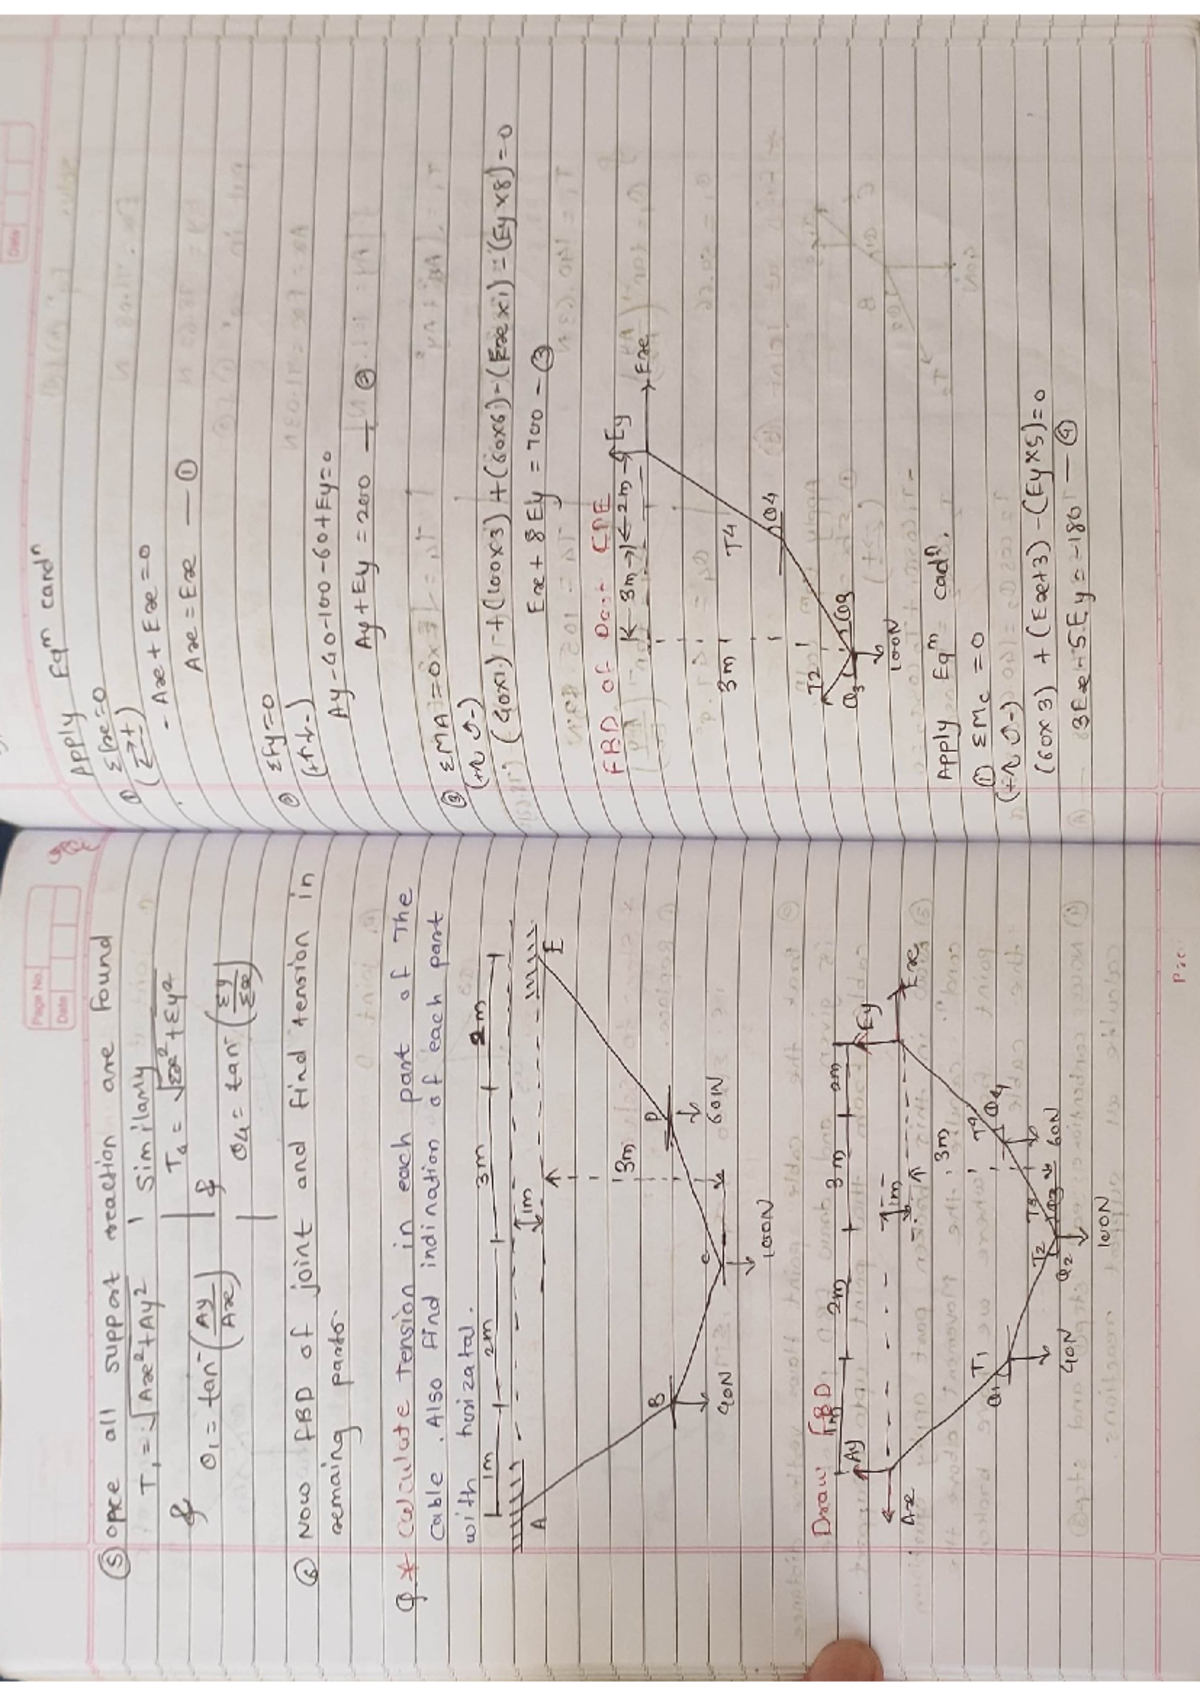 Page No.
Date
⑤ once all support reaction are found
T₁ = √Ax² + Ay² | Similarly
T₄ = √Ex² + Ey²
& &
θ₁ = tan⁻ (Ay/Ax) | θ₄ = tan⁻ (Ey/Ex)
⑥ Now FBD of joint and find tension in
remaing parts.
Q * Calculate tension in each part of The
cable. Also find indination of each part
with horizatal.
1m 2m 3m 2m
A E
1m
3m
B D
C
40N 60N
100N
Draw FBD
1m 2m 3m 2m
Ay Ey
Ax Ex
1m
3m
θ₁ T₁ T₂ T₃ T₄ θ₄
θ₂ θ₃
40N 60N
100N
Date
Apply Eqᵐ condⁿ
① Σfx=0
(→+)
- Ax + Ex = 0
Ax = Ex — ①
② Σfy=0
(+↑↓-)
Ay - 40 - 100 - 60 + Ey = 0
Ay + Ey = 200 — ②
③ ΣMA = 0
(+↻ ↺-)
(40x1) + (100x3) + (60x6) - (Ex x1) - (Ey x8) = 0
Ex + 8Ey = 700 — ③
FBD of CDE
3m 2m Ey
Ex
3m
T4
θ4
T2 θ3
100N
Apply Eqᵐ cadⁿ.
① ΣMc = 0
(+↻ ↺-)
(60x3) + (Ex+3) - (Ey x5) = 0
3Ex - 5Ey = -180 — ④